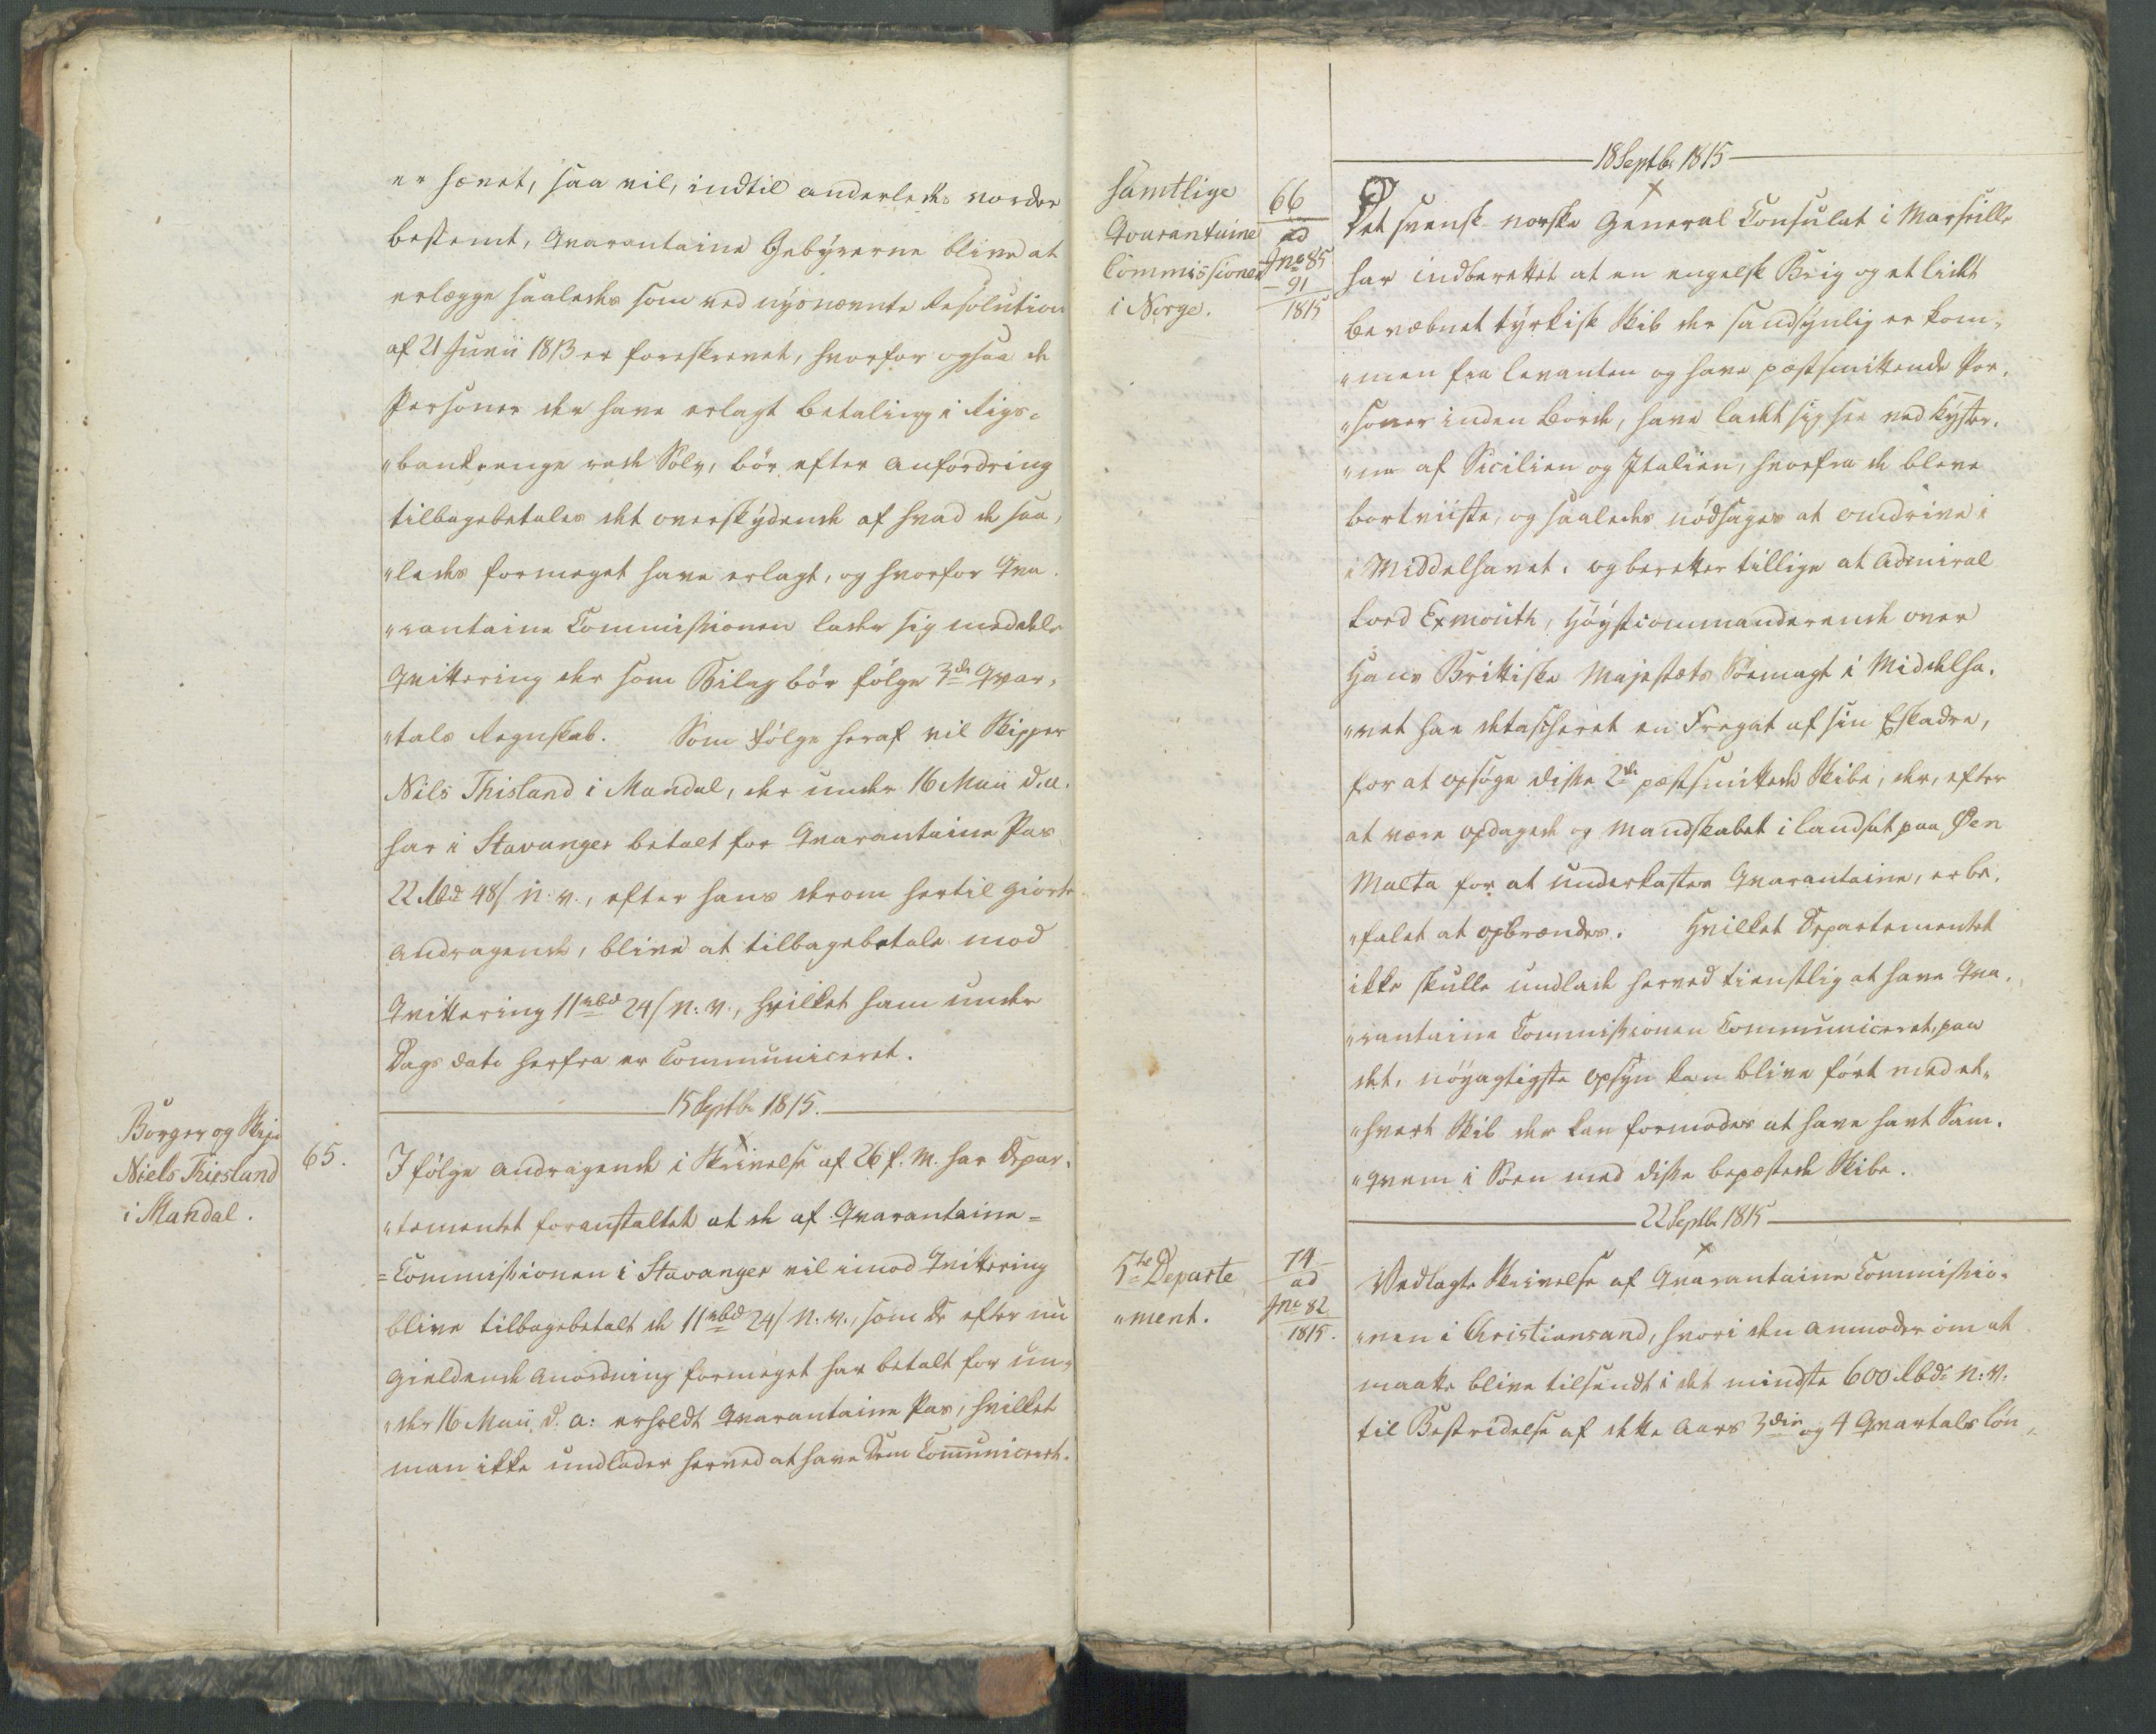 er hævet, saa vil, indtil anderledes vorder
bestemt, Qvarantaine Gebyrerne blive at
erlægge saaledes som ved nysnævnte Resolution
af 21 Junii 1813 er foreskrevet, hvorfor ogsaa de
Personer der have erlagt betaling i Rigs-
"bankpenge rede Sölv, bör efter anfordring
tilbagebetales det overskydende af hvad de saa,
"ledes formeget have erlagt, og hvorfor Qva
"rantaine Commissionen lader sig meddele
Qvittering der som Bilag bör fölge 3de Qvar,
"tals Regnskab. Som fölge heraf vil Skipper
Niels Thisland i Mandal, der under 16 Maii d. a.
har i Stavanger betalt for Qvarantaine Pas
22 Rbd 48/ n. v., efter hans derom hertil giorte
andragende, blive at tilbagebetale mod
Qvittering 11 rbd 24/ n: v., hvilket ham under
Dags dato herfra er Communiceret.
15 Septbr 1815.
Borger og Skip
Niels Thisland
i Mandal.
65.
I fölge andragende i Skrivelse af 26 f. M. har Depar,
"tementet foranstaltet at de af Qvarantaine=
=Commissionen i Stavanger vil imod Qvittering
blive tilbagebetalt de 11 rbd 24/ n. v., som De efter nu
gieldende anordning formeget har betalt for un,
"der 16 Maii d. a: erholdt Qvarantaine Pas, hvilket
man ikke undlader herved at have Dem Communiceret.
18 Septbr 1815
Samtlige
Qvarantaine
Commissioner
i Norge.
66
ad
Jno 85
- 91
1815
Det svensk norske General Consulat i Marseille
har indberettet at en engelsk Brig og et lidet
bevæbnet tyrkisk Skib der sandsynlig er kom,
"men fra Levanten og have pestsmittende Per,
"soner inden Borde, have ladet sig see ved Kyster,
"ne af Sicilien og Italien, hvorfra de bleve
bortviiste, og saaledes nödsages at omdrive i
i Middelhavet. og beretter tillige at Admiral
Lord Exmouth, Höystcommanderende over
Hans Brittiske Majestæts Söemagt i Middelha,
"vet har detascheret en Fregat af sin Eskadre,
for at opsöge disse 2de pestsmittede Skibe, der, efter
at være opdagede og Mandskabet ilandsat paa Øen
Malta for at underkastes Qvarantaine, er be,
"falet at opbrændes. Hvilket Departementet
ikke skulle undlade herved tienstlig at have Qva,
"rantaine Commissionen Communiceret, paa
det, nöyagtigste opsyn kan blive fört med et,
"hvert Skib der kan formodes at have havt Sam,
"qvem i Söen med disse bepestede Skibe.
22 Septbr 1815
5te Departe
"ment.
74
ad
Jno 82
1815.
Vedlagte Skrivelse af Qvarantaine Commissio,
"nen i Christiansand, hvori den anmoder om at
maatte blive tilsendt i det mindste 600 Rbd n: v.
til Bestridelse af dette Aars 3die og 4 Qvartals Lön,